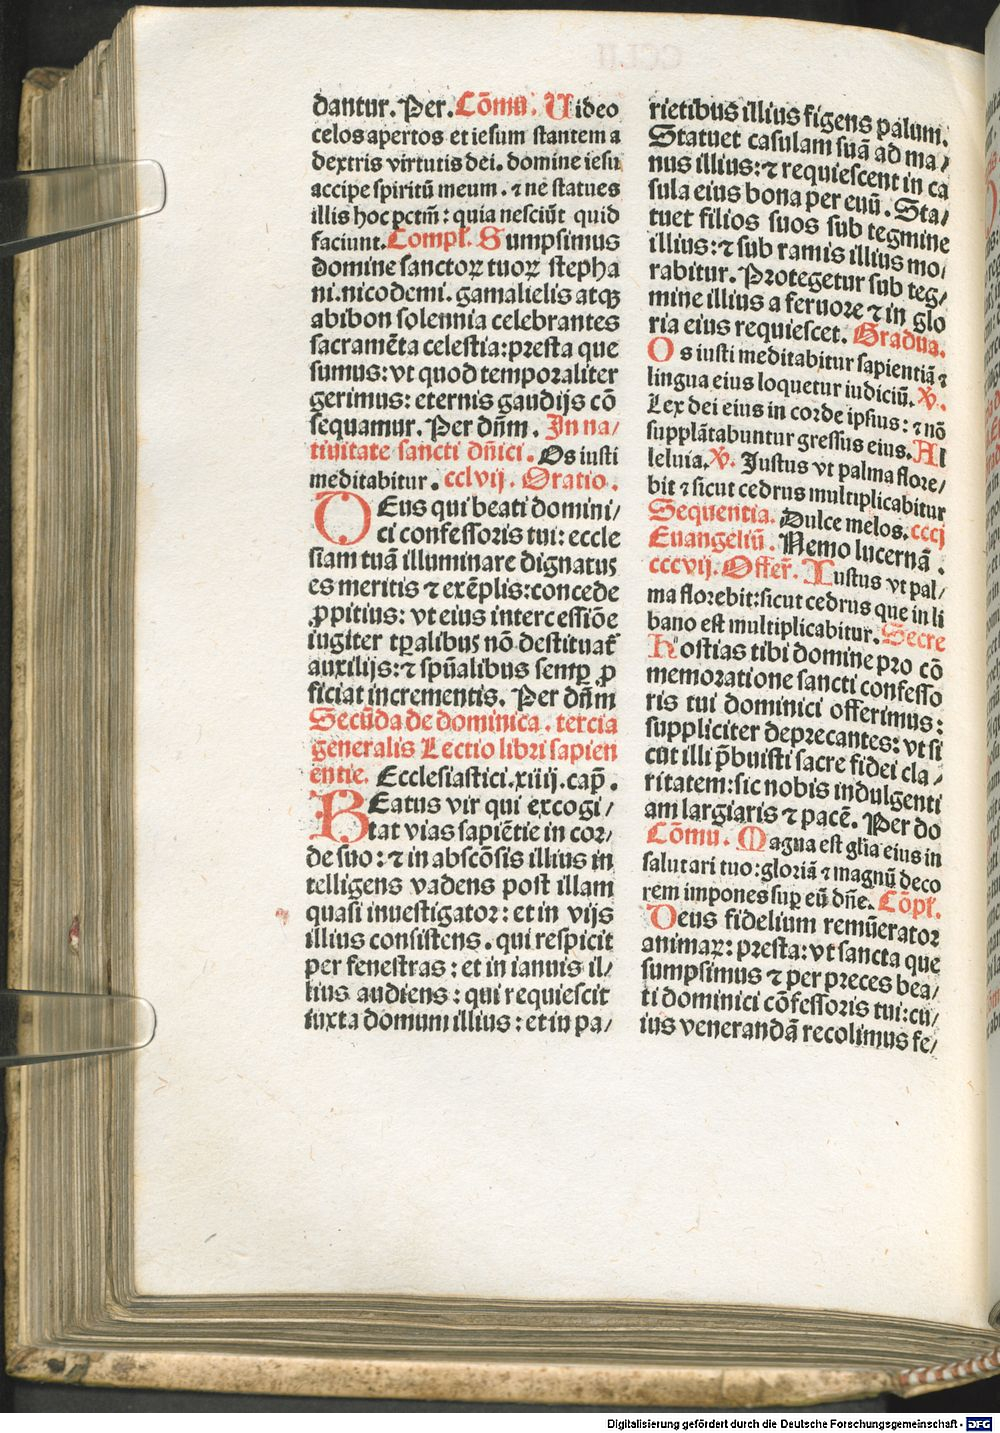 dantur. Per. Cōmu. Uideo
celos apertos et iesum stantem a
dextris virtutis dei. domine iesu
accipe spiritū meum. ⁊ ne statues
illis hoc pctm̄: quia nesciūt quid
faciunt. Compl̄. Sumpsimus
domine sanctoꝝ tuoꝝ stepha
ni. nicodemi. gamalielis atqꝫ
abibon solennia celebrantes
sacramēta celestia: presta que
sumus: vt quod temporaliter
gerimus: eternis gaudijs cō
sequamur. Per dn̄m. In na/
tiuitate sancti dn̄ici. Os iusti
meditabitur. cclvij. Oratio.
DEus qui beati domini/
ci confessoris tui: eccle
siam tuā illuminare dignatus
es meritis ⁊ exēplis: concede
ꝓpitius: vt eius intercessiōe
iugiter tp̄alibus nō destituat̄
auxilijs: ⁊ spūalibus semꝑ ꝓ
ficiat incrementis. Per dn̄m
Secūda de dominica. tercia
generalis Lectio libri sapien
entie. Ecclesiastici. xiiij. cap̄.
BEatus vir qui excogi/
tat vias sapiētie in cor/
de suo: ⁊ in abscōsis illius in
telligens vadens post illam
quasi inuestigator: et in vijs
illius consistens. qui respicit
per fenestras: et in ianuis il/
lius audiens: qui requiescit
iuxta domum illius: et in pa/
rietibus illius figens palum.
Statuet casulam suā ad ma/
nus illius: ⁊ requiescent in ca
sula eius bona per euū. Sta/
tuet filios suos sub tegmine
illius: ⁊ sub ramis illius mo/
rabitur. Protegetur sub teg/
mine illius a feruore ⁊ in glo
ria eius requiescet. Gradua.
Os iusti meditabitur sapientiā ⁊
lingua eius loquetur iudiciū. ꝟ.
Lex dei eius in corde ipsius: ⁊ nō
supplātabuntur gressus eius. Al
leluia. ꝟ. Justus vt palma flore/
bit ⁊ sicut cedrus multiplicabitur
Sequentia. Dulce melos. cccj
Euangeliū. Nemo lucernā.
cccvij. Offer̄. Iustus vt pal/
ma florebit: sicut cedrus que in li
bano est multiplicabitur. Secre
Hostias tibi domine pro cō
memoratione sancti confesso
ris tui dominici offerimus:
suppliciter deprecantes: vt si
cut illi p̄buisti sacre fidei cla/
ritatem: sic nobis indulgenti
am largiaris ⁊ pacē. Per do
Cōmu. Magna est gl̄ia eius in
salutari tuo: gloriā ⁊ magnū deco
rem impones suꝑ eū dn̄e. Cōpl̄.
Deus fidelium remūerator
animaꝝ: presta: vt sancta que
sumpsimus ⁊ per preces bea/
ti dominici cōfessoris tui: cu/
ius venerandā recolimus fe/
Digitalisierung gefördert durch die Deutsche Forschungsgemeinschaft - DFG